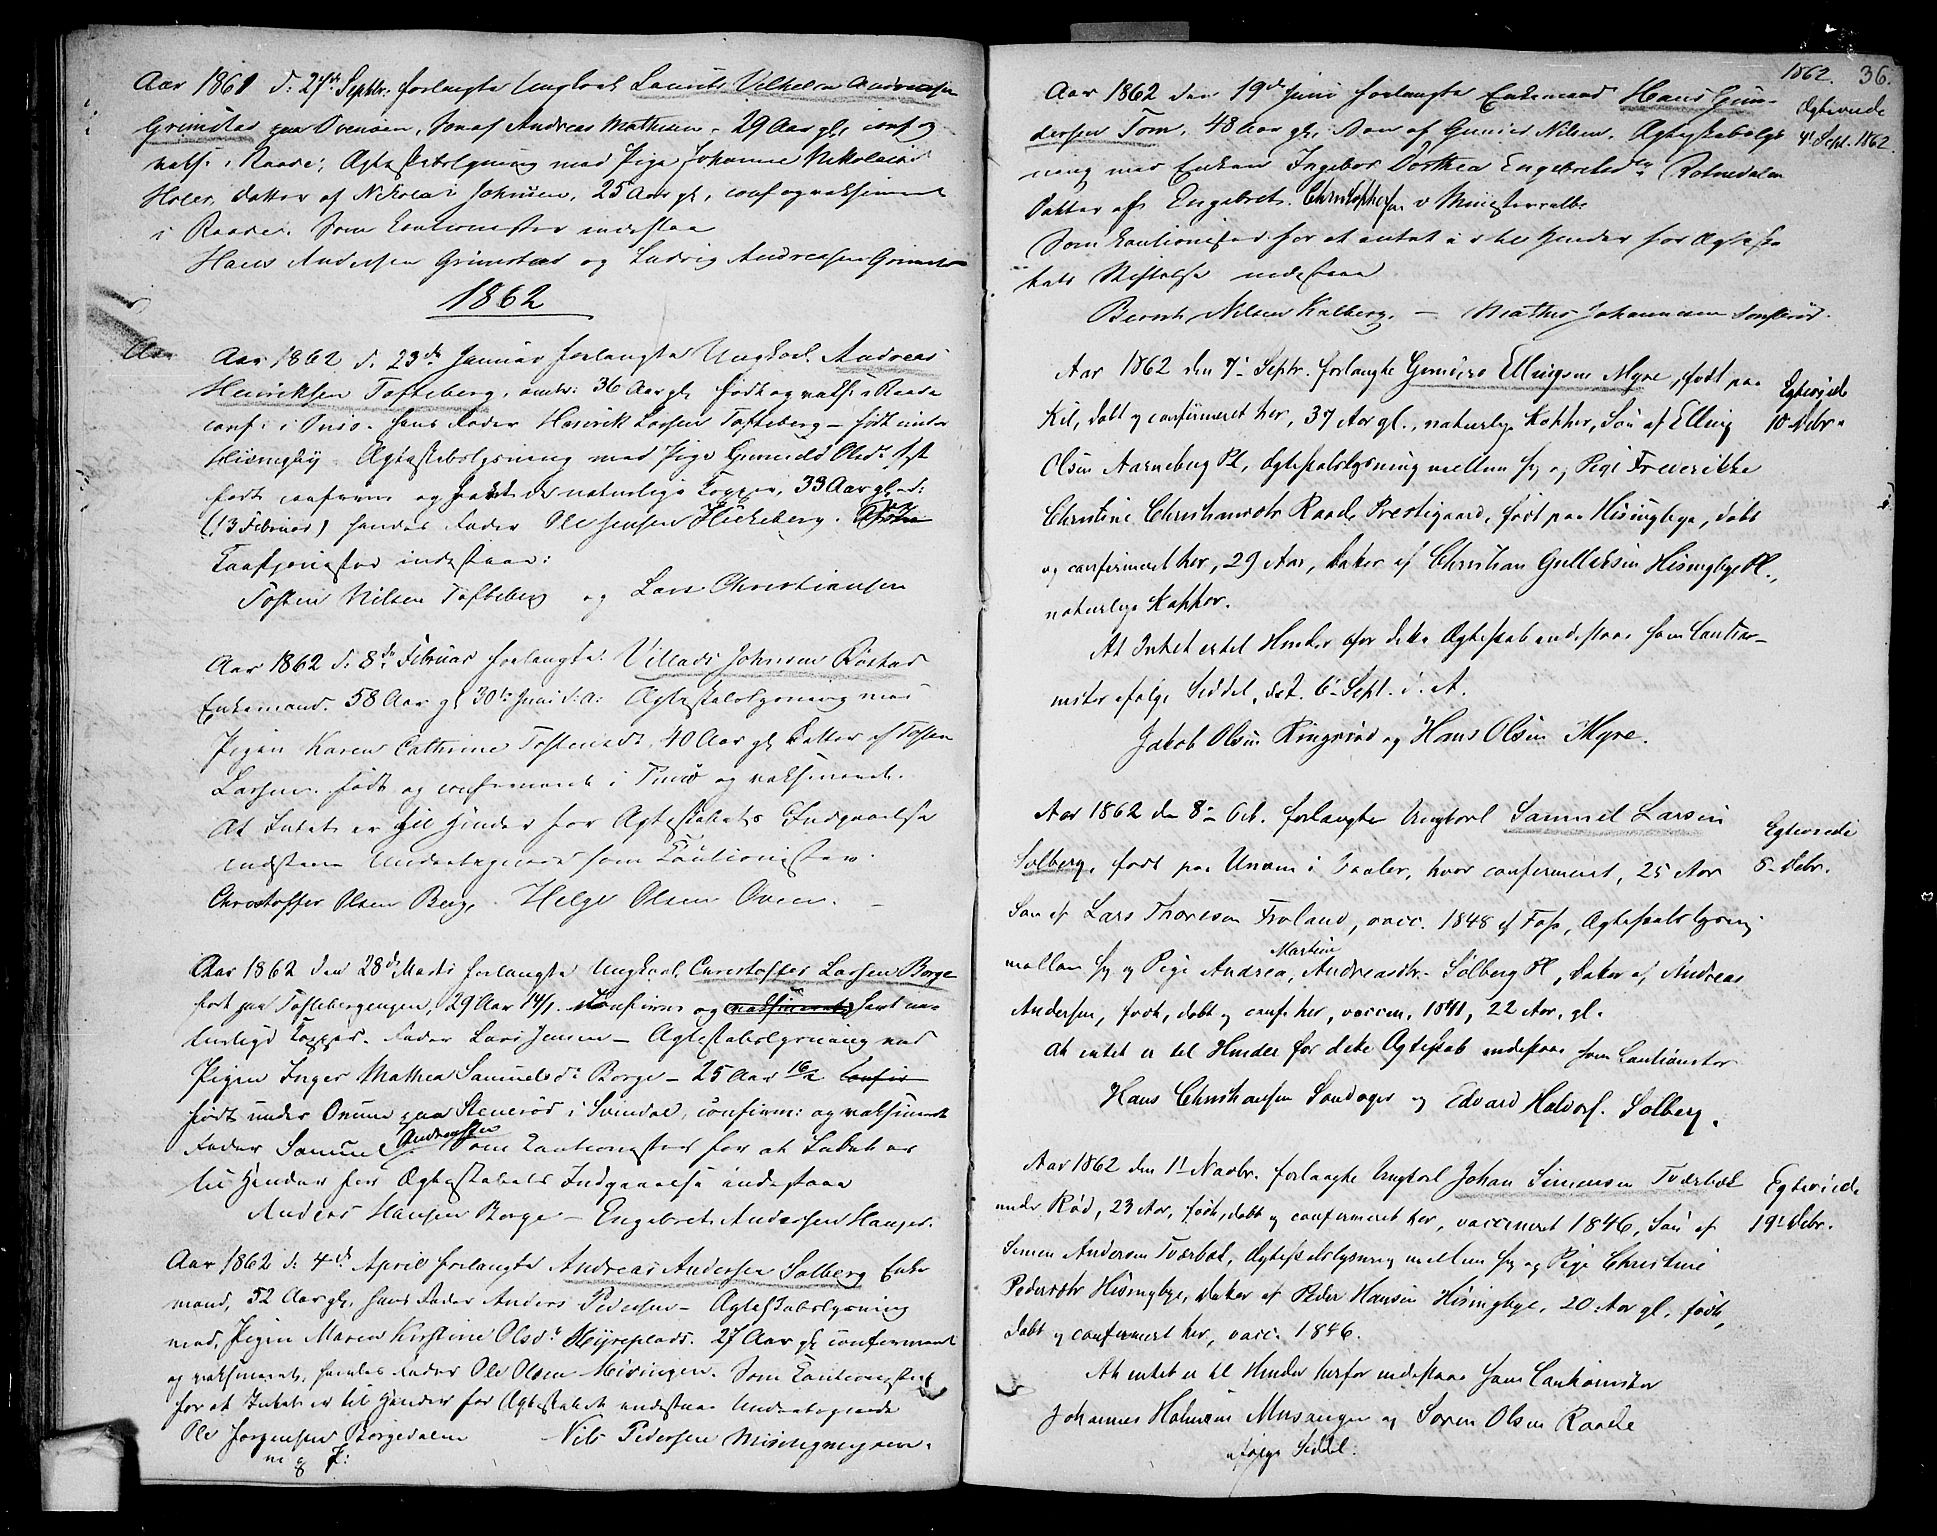 Aar 1861 d: 27de Septbr: forlangte Ungkarl Lauritz Vilhelm Andreasen
Grimstad paa Ovenøen, Søn af Andreas Mathisen, 29 Aar gl, conf og
vaks: i Raade; Ægteskabslysning med Pige Johanne Nikolaisd
Holer, Datter af Nikolai Johnsen, 25 Aar gl, conf og vaksineret
i Raade. Som Cautionister indestaa
Hans Andersen Grimstad og Ludvig Andreasen Grimstad
1862
Aar
Aar 1862 d. 23de Januar forlangte Ungkarl Andreas
Henriksen Tofteberg, 36 Aar gl, født og vaks: i Raade
conf: i Onsø. hans Fader Henrik Larsen Tofteberg – født under
Hisingby. Ægteskabslysning med Pige Gunnild Olsdt
født confirm og havt de naturlige Kopper, 33 Aar gl
(13 Februar) hendes Fader Ole Jensen Hickeberg.
indestaar:
Tosten Nilsen Tofteberg og Lars Christiansen
Aar 1862 d. 8de Februar forlangte Villads Johnsen Røstad
Enkemand. 58 Aar gl 30te Juni d: a: Ægteskabslysning med
Pigen Karen Cathrine Tostensdt, 40 Aar gl Datter af Tosten
Larsen. født og confirmeret i Tunø og vaksineret.
At Intet er til Hinder for Ægteskabets Indgaaelse
indestaar Undertegnede som Cautionister.
Christoffer Olsen Berg. Helge Olsen Oven. –
Aar 1862 den 28de Marts forlangte Ungkarl Christoffer Larsen Borge
født paa Toftebergengen, 29 Aar 14/1. Confirm og vaksineret havt na-
turlige Kopper. Fader Lars Jensen – Ægteskabslysning med
Pigen Inger Mathea Samuelsdt Borge – 25 Aar 16/2 Confir
født under Onum paa Stenerød i Svindal, confirm: og vaksineret
Fader Samuel Andreassen Som Cautionister for at Intet er
til Hinder for Ægteskabets Indgaaelse indestaar
Anders Hansen Borge – Engebret Andersen Hauger.
Aar 1862 d: 4de April forlangte Andreas Andersen Solberg Enke
mand, 52 Aar gl, hans Fader Anders Pedersen – Ægteskabslysning
med Pigen Maren Kirstine Olsdt Myreplads. 27 Aar gl confirmeret
og vaksineret, hendes Fader Ole Olsen Misingen. Som Cautionister
for at Intet er til Hinder for Ægteskabet indestaar Undertegnede
Ole Jørgensen Borgedalen Nils Pedersen Misingmyren.
m q F:
1862. 36.
Aar 1862 den 19de Juni forlangte Enkemand Hans Gun-
dersen Tom, 48 Aar gl, Søn af Gunder Nilsen, Ægteskabslys-
ning med Enken Ingebor Dorthea Engebretsdtr Rolnedalen
Datter af Engebret Christophersen
Som Cautionister for at intet er til Hinder for Ægteska-
bets Stiftelse indestaar
Bernt Nilsen Kalberg. – Mathis Johannesen Sonsterød.
Ægteviede
4' Sept. 1862.
Aar 1862 den 7' Septr. forlangte Gunerius Ellingsen Myre, født paa
Kil, døbt og confirmeret her, 37 Aar gl., naturlige Kopper, Søn af Elling
Olsen Aarneberg Pl, Ægteskabslysning mellem sig og Pige Frederikke
Christine Christiansdtr Raade Prestegaard, født paa Hisingbye, døbt
og confirmeret her, 29 Aar, Datter af Christian Gulliksen Hisingbye Pl.,
naturlige Kopper.
At Intet er til Hinder for dette Ægteskab indestaar som Cautio-
nister ifølge Seddel, dat. 6' Sept. d. A.
Jakob Olsen Ringsrød og Hans Olsen Myre.
Egteviede
10 Debr.
Aar 1862 den 8' Oct. forlangte Ungkarl Samuel Larsen
Solberg, født paa Unum i Vaaler, hvor confirmeret, 25 Aar
Søn af Lars Thoresen Froland, vacc. 1848 af Foss, Ægteskabslysning
mellem sig og Pige Andrea Martine Andreasdtr. Solberg Pl, Datter af Andreas
Andersen, født, døbt og confr her, vaccin. 1841, 22 Aar gl.
At intet er til Hinder for dette Ægteskab indestaar som Cautionister
Hans Christiansen Sandager og Edvard Haldors. Solberg.
Egteviede
5' Debr.
Aar 1862 den 1' Novbr. forlangte Ungkarl Johan Simensen Tværbæk
under Rød, 23 Aar, født, døbt og confirmeret her, vaccineret 1846, Søn af
Simen Andersen Tværbæk, Ægteskabslysning mellem sig og Pige Christine
Pedersdtr Hisingbye, Datter af Peder Hansen Hisingbye, 20 Aar gl, født,
døbt og confirmeret her, vacc. 1846.
At intet er til Hinder herfor indestaar som Cautionister
Johannes Halvorsen Musanger og Søren Olsen Raade
ifølge Seddel.
Egteviede
19' Debr.